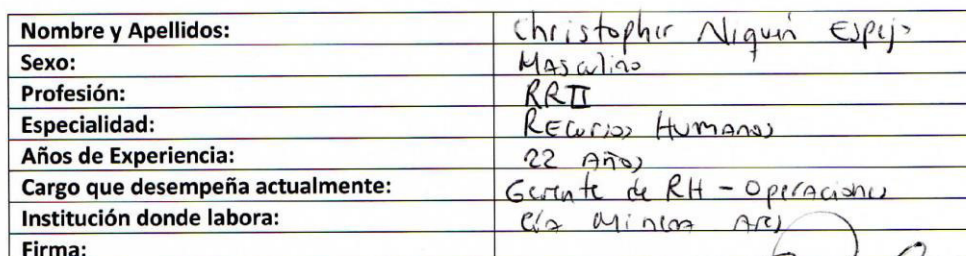 Nombre y Apellidos: Christopher Niquin Espejo
Sexo: Masculino
Profesión: RRII
Especialidad: Recursos Humanos
Años de Experiencia: 22 Años
Cargo que desempeña actualmente: Gerente de RH - Operaciones
Institución donde labora: Cía Minera Ares
Firma: